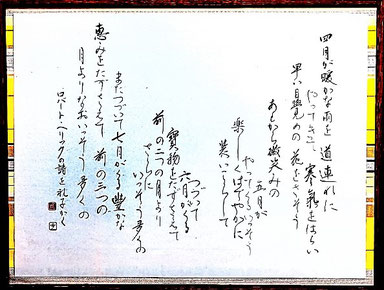 四月が暖かな雨を道連れに
やってきて 寒氣をはらい
早い目覚めの花をさそう
あとから微笑みの
五月が
やってくる いっそう
楽しくはなやかに
装いをこらして
つづいて
六月がくる
寳物をたずさえて
前の二つの月より
さらに
いっそう多くの
またつづいて七月がくる 豊かな
恵みをたずさえて 前の三つの
月よりなおいっそう多くの
ロバート・ヘリックの詩を